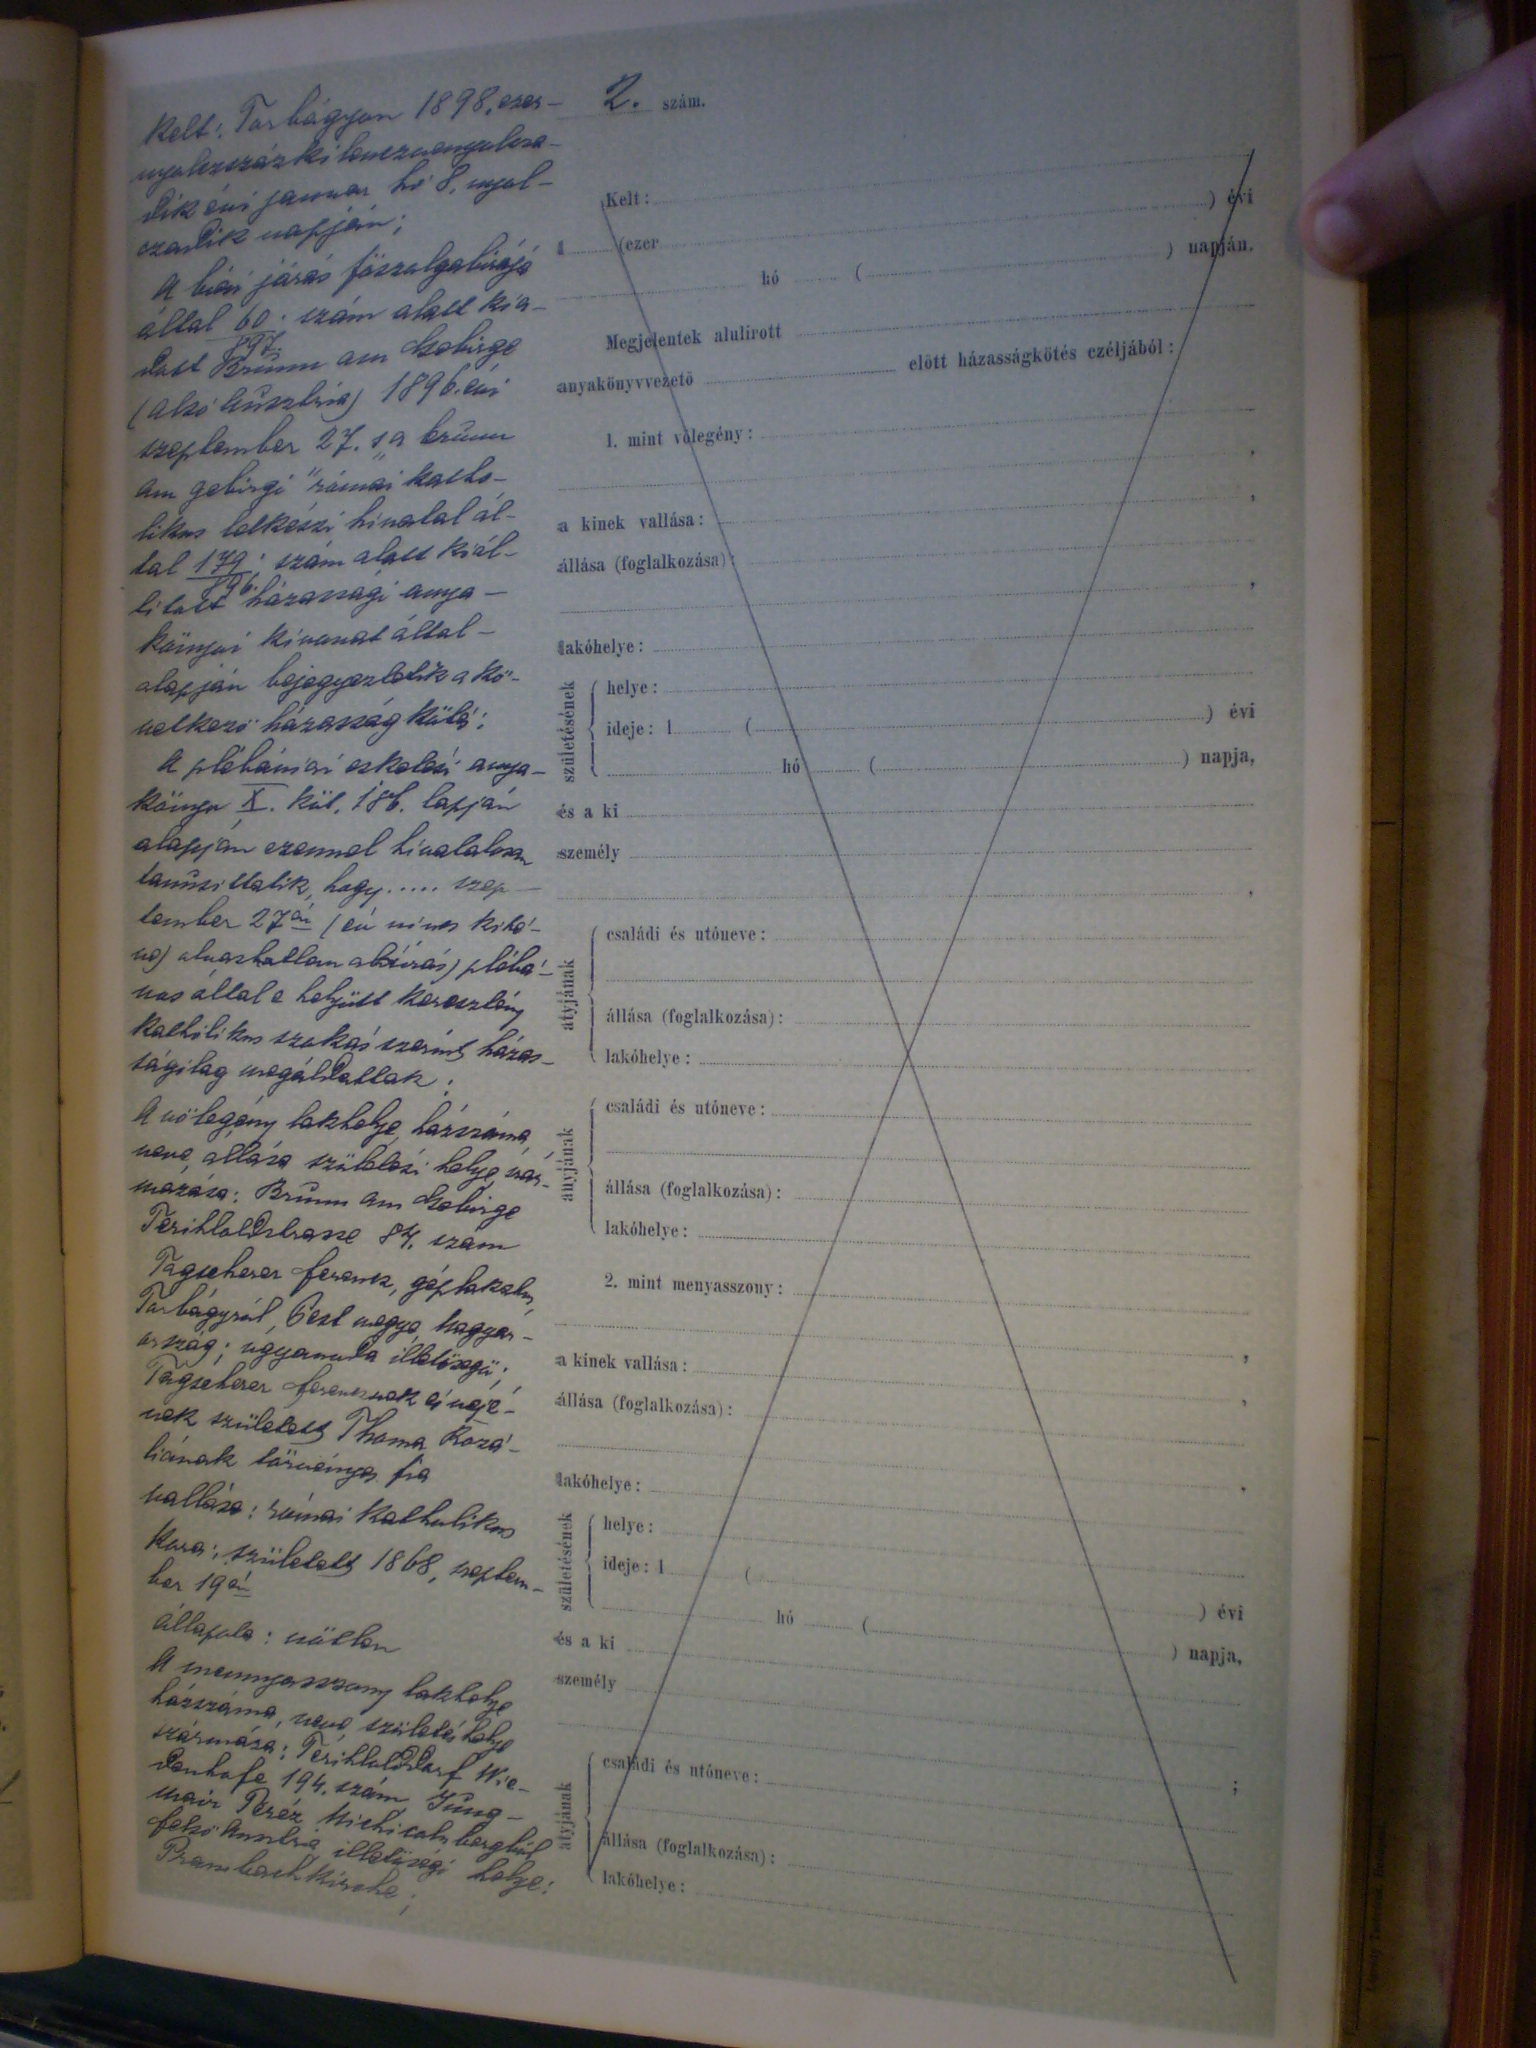 Kelt: Torbágyon 1898, ezer-
nyolczszázkilenczvennyolcza-
dik évi januar hó 8, nyol-
czadik napján;
A biai járás főszolgabirája
által 60/897. szám alatt kia-
dott Brunn am Gebirge
(alsó Ausztria) 1896. évi
szeptember 27. s a brunn
am gebirgi "római katho-
likus lelkészi hivatal ál-
tal 179/896. szám alatt kiál-
litott házassági anya-
könyvi kivonat által-
alapján bejegyeztetik a kö-
vetkező házasság kötés:
A plébániai esketési anya-
könyv X. köt. 186. lapján
alapján ezennel hivatalosan
tanusittatik, hogy ..... szep-
tember 27én (év nincs kité-
ve) olvashatlan aláirás) plébá-
nos által e helyütt keresztény
katholikus szokás szerint házas-
ságilag megáldattak;
A vőlegény lakhelye, házszáma,
neve, állása születési helye, szár-
mazása: Brunn am Gebirge
87. szám
Tagscherer Ferencz, géplakatos,
Torbágyról, Pest megye, Magyar-
ország; ugyanoda illetőségű;
Tagscherer Ferencznek és nejé-
nek született Thoma Rozá-
liának törvényes fia
vallása: római katholikus
kora: született 1868, szeptem-
ber 19én
állapota: nőtlen
A mennyasszony lakhelye
házszáma, neve, születés helye
származása: Wie-
denhofe 194. szám Jung-
mair Teréz
felső Austria illetőségi helye:
Prambachkirche;
2. szám.
Kelt: ) évi
1 (ezer ) napján.
hó (
Megjelentek alulirott
anyakönyvvezető előtt házasságkötés czéljából:
1. mint vőlegény:
,
a kinek vallása: ,
állása (foglalkozása):
,
lakóhelye:
születésének
helye:
ideje: 1 ( ) évi
hó ( ) napja,
és a ki
személy
,
atyjának
családi és utóneve:
állása (foglalkozása):
lakóhelye:
anyjának
családi és utóneve:
állása (foglalkozása):
lakóhelye:
2. mint menyasszony:
,
a kinek vallása: ,
állása (foglalkozása):
,
lakóhelye:
születésének
helye:
ideje: 1 ( ) évi
hó ( ) napja,
és a ki
személy
;
atyjának
családi és utóneve:
állása (foglalkozása):
lakóhelye: